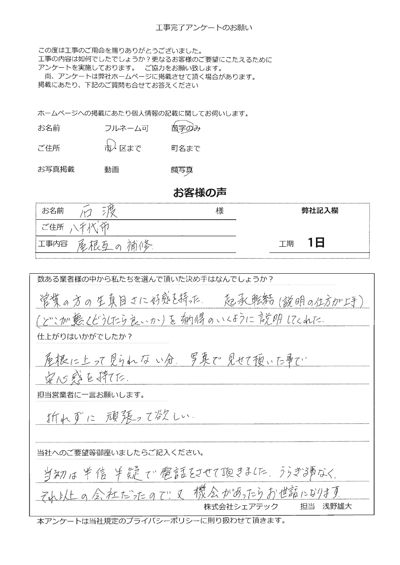 工事完了アンケートのお願い
この度は工事のご用命を賜りありがとうございました。
工事の内容は如何でしたでしょうか?更なるお客様のご要望にこたえるために
アンケートを実施しております。 ご協力をお願い致します。
尚、アンケートは弊社ホームページに掲載させて頂く場合があります。
掲載にあたり、下記のご質問も合せてお答えください
ホームページへの掲載にあたり個人情報の記載に関してお伺いします。
お名前 フルネーム可 苗字のみ
ご住所 市・区まで 町名まで
お写真掲載 動画 顔写真
お客様の声
お名前 石渡 様 弊社記入欄
ご住所 八千代市
工事内容 屋根瓦の補修 工期 1日
数ある業者様の中から私たちを選んで頂いた決め手はなんでしょうか?
営業の方の生真目さに好感を持った. 起承転結(説明の仕方が上手)
(どこが悪くどうしたら良いか)を納得のいくように説明してくれた.
仕上がりはいかがでしたか?
屋根に上って見られない分、写真で見せて頂いた事で
安心感を持てた.
担当営業者に一言お願いします。
折れずに頑張って欲しい.
当社へのご要望等御座いましたらご記入ください。
当初は半信半疑で電話をさせて頂きました. うらぎる事なく、
それ以上の会社だったので、又機会があったらお世話になります
株式会社シェアテック 担当 浅野雄大
本アンケートは当社規定のプライバシーポリシーに則り扱わせて頂きます。